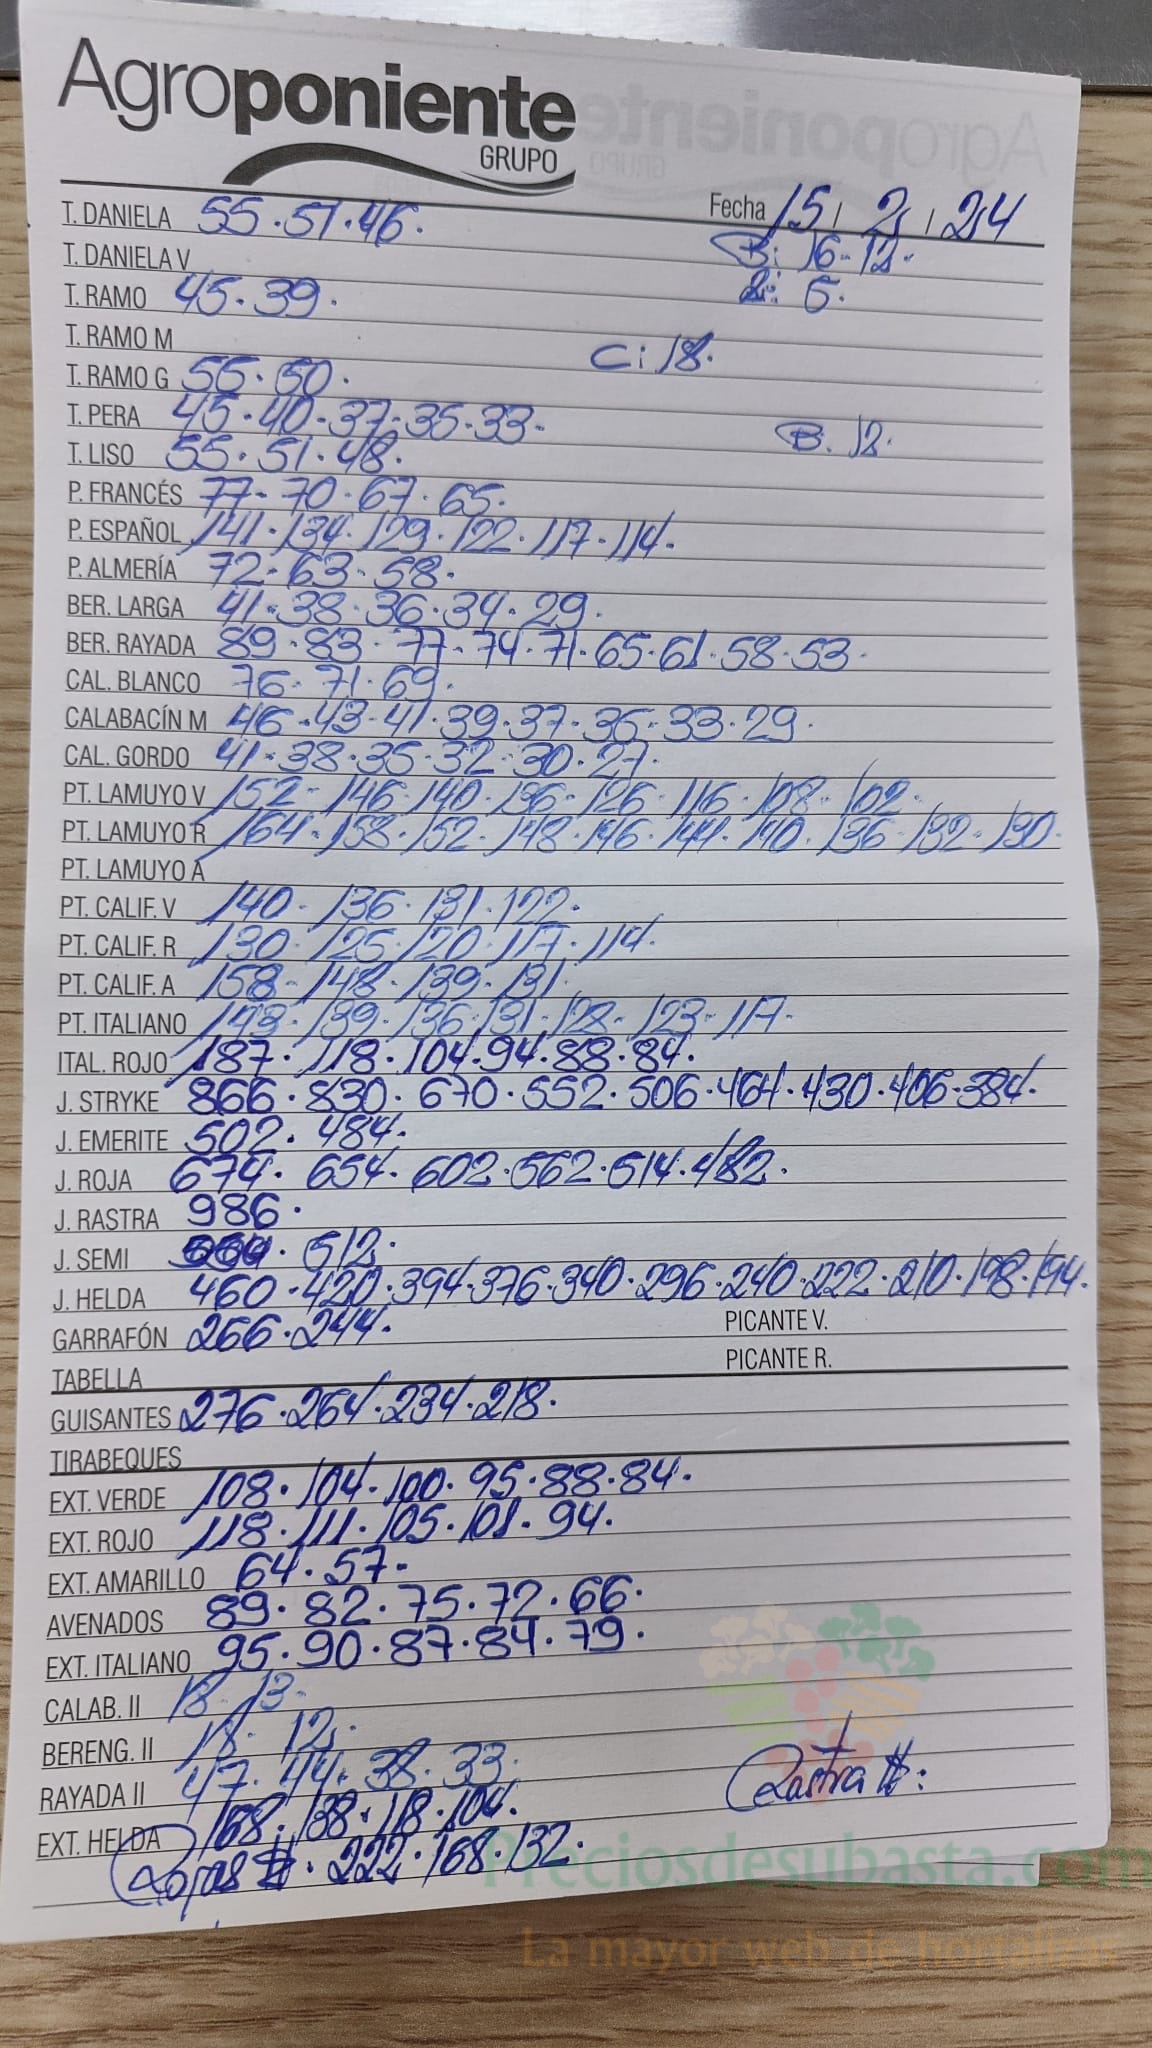 Agroponiente
GRUPO
Fecha 15 / 2 / 24
T. DANIELA 55.51.46.
B: 16-12.
T. DANELA V
2: 6.
T. RAMO 45.39.
T. RAMO M
C: 18.
T. RAMO G 55.50.
T. PERA 45.40.37.35.33.
B. 12.
T. LISO 55.51.48.
P. FRANCÉS 77-70.67.65.
P. ESPAÑOL 141.134.129.122.117.114.
P. ALMERÍA 72.63.58.
BER. LARGA 41.38.36.34.29.
BER. RAYADA 89.83.77.74.71.65.61.58.53.
CAL. BLANCO 76.71.69.
CALABACÍN M 46.43.41.39.37.35.33.29.
CAL. GORDO 41.38.35.32.30.27.
PT. LAMUYO V 152.146.140.136.126.116.108.102.
PT. LAMUYO R 164.158.152.148.146.144.140.136.132.130.
PT. LAMUYO A
PT. CALIF. V 140.136.131.122.
PT. CALIF. R 130.125.120.117.114.
PT. CALIF. A 158.148.139.131.
PT. ITALIANO 143.139.136.131.128.123.117.
ITAL. ROJO 187.118.104.94.88.84.
J. STRYKE 866.830.670.552.506.464.430.406.384.
J. EMERITE 502.484.
J. ROJA 674.654.602.562.514.482.
J. RASTRA 986.
J. SEMI 512.
J. HELDA 460.420.394.376.340.296.240.222.210.198.194.
GARRAFÓN 266.244.
PICANTE V.
PICANTE R.
TABELLA
GUISANTES 276.264.234.218.
TIRABEQUES
EXT. VERDE 108.104.100.95.88.84.
EXT. ROJO 118.111.105.101.94.
EXT. AMARILLO 64.57.
AVENADOS 89.82.75.72.66.
EXT. ITALIANO 95.90.87.84.79.
CALAB. II 18.13.
BERENG. II 18.12.
RAYADA II 47.44.38.33.
Rastra II:
EXT. HELDA 168.138.118.104.
Rojas II. 222.168.132.
Preciosdesubasta.com
La mayor web de hortalizas